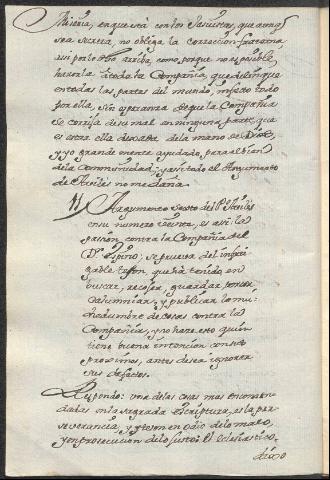 Materia, en que está con los Jesuitas, que aunq̃
sea secreta, no obliga la correccion fraterna
assi por lo dho arriba, como porque no es posible,
hacerla á toda la Compañia, que delinque
en todas las partes del mundo, infesto todo
por ella, sin esperanza de que la Compañia
se corrija de su mal en ninguna parte, que
es estar ella dexada de la mano de Dios,
y yo grandemente ayudado para el bien
de la Communidad; y assi todo el Argumento
de Avilés no me daña.
Argumento Sexto del P. Avilés
en su numero veinte, es assi: la
pasion contra la Compañia del
Dr. Espino; se prueva del infati-
gable teson, que ha tenido en
buscar, recojer, guardar
calumniar, y publicar la mu-
chedumbre de cosas contra la
Compañia, y no hace esto quien
tiene buena intencion con sus
proximos, antes desea ignorar
sus defectos.
Respondo: una de las cosas mas encomen-
dadas en la sagrada Escriptura, es la per-
severancia, y teson en odio de lo malo,
y en prosecucion de lo justo: El eclesiastico.
dixo